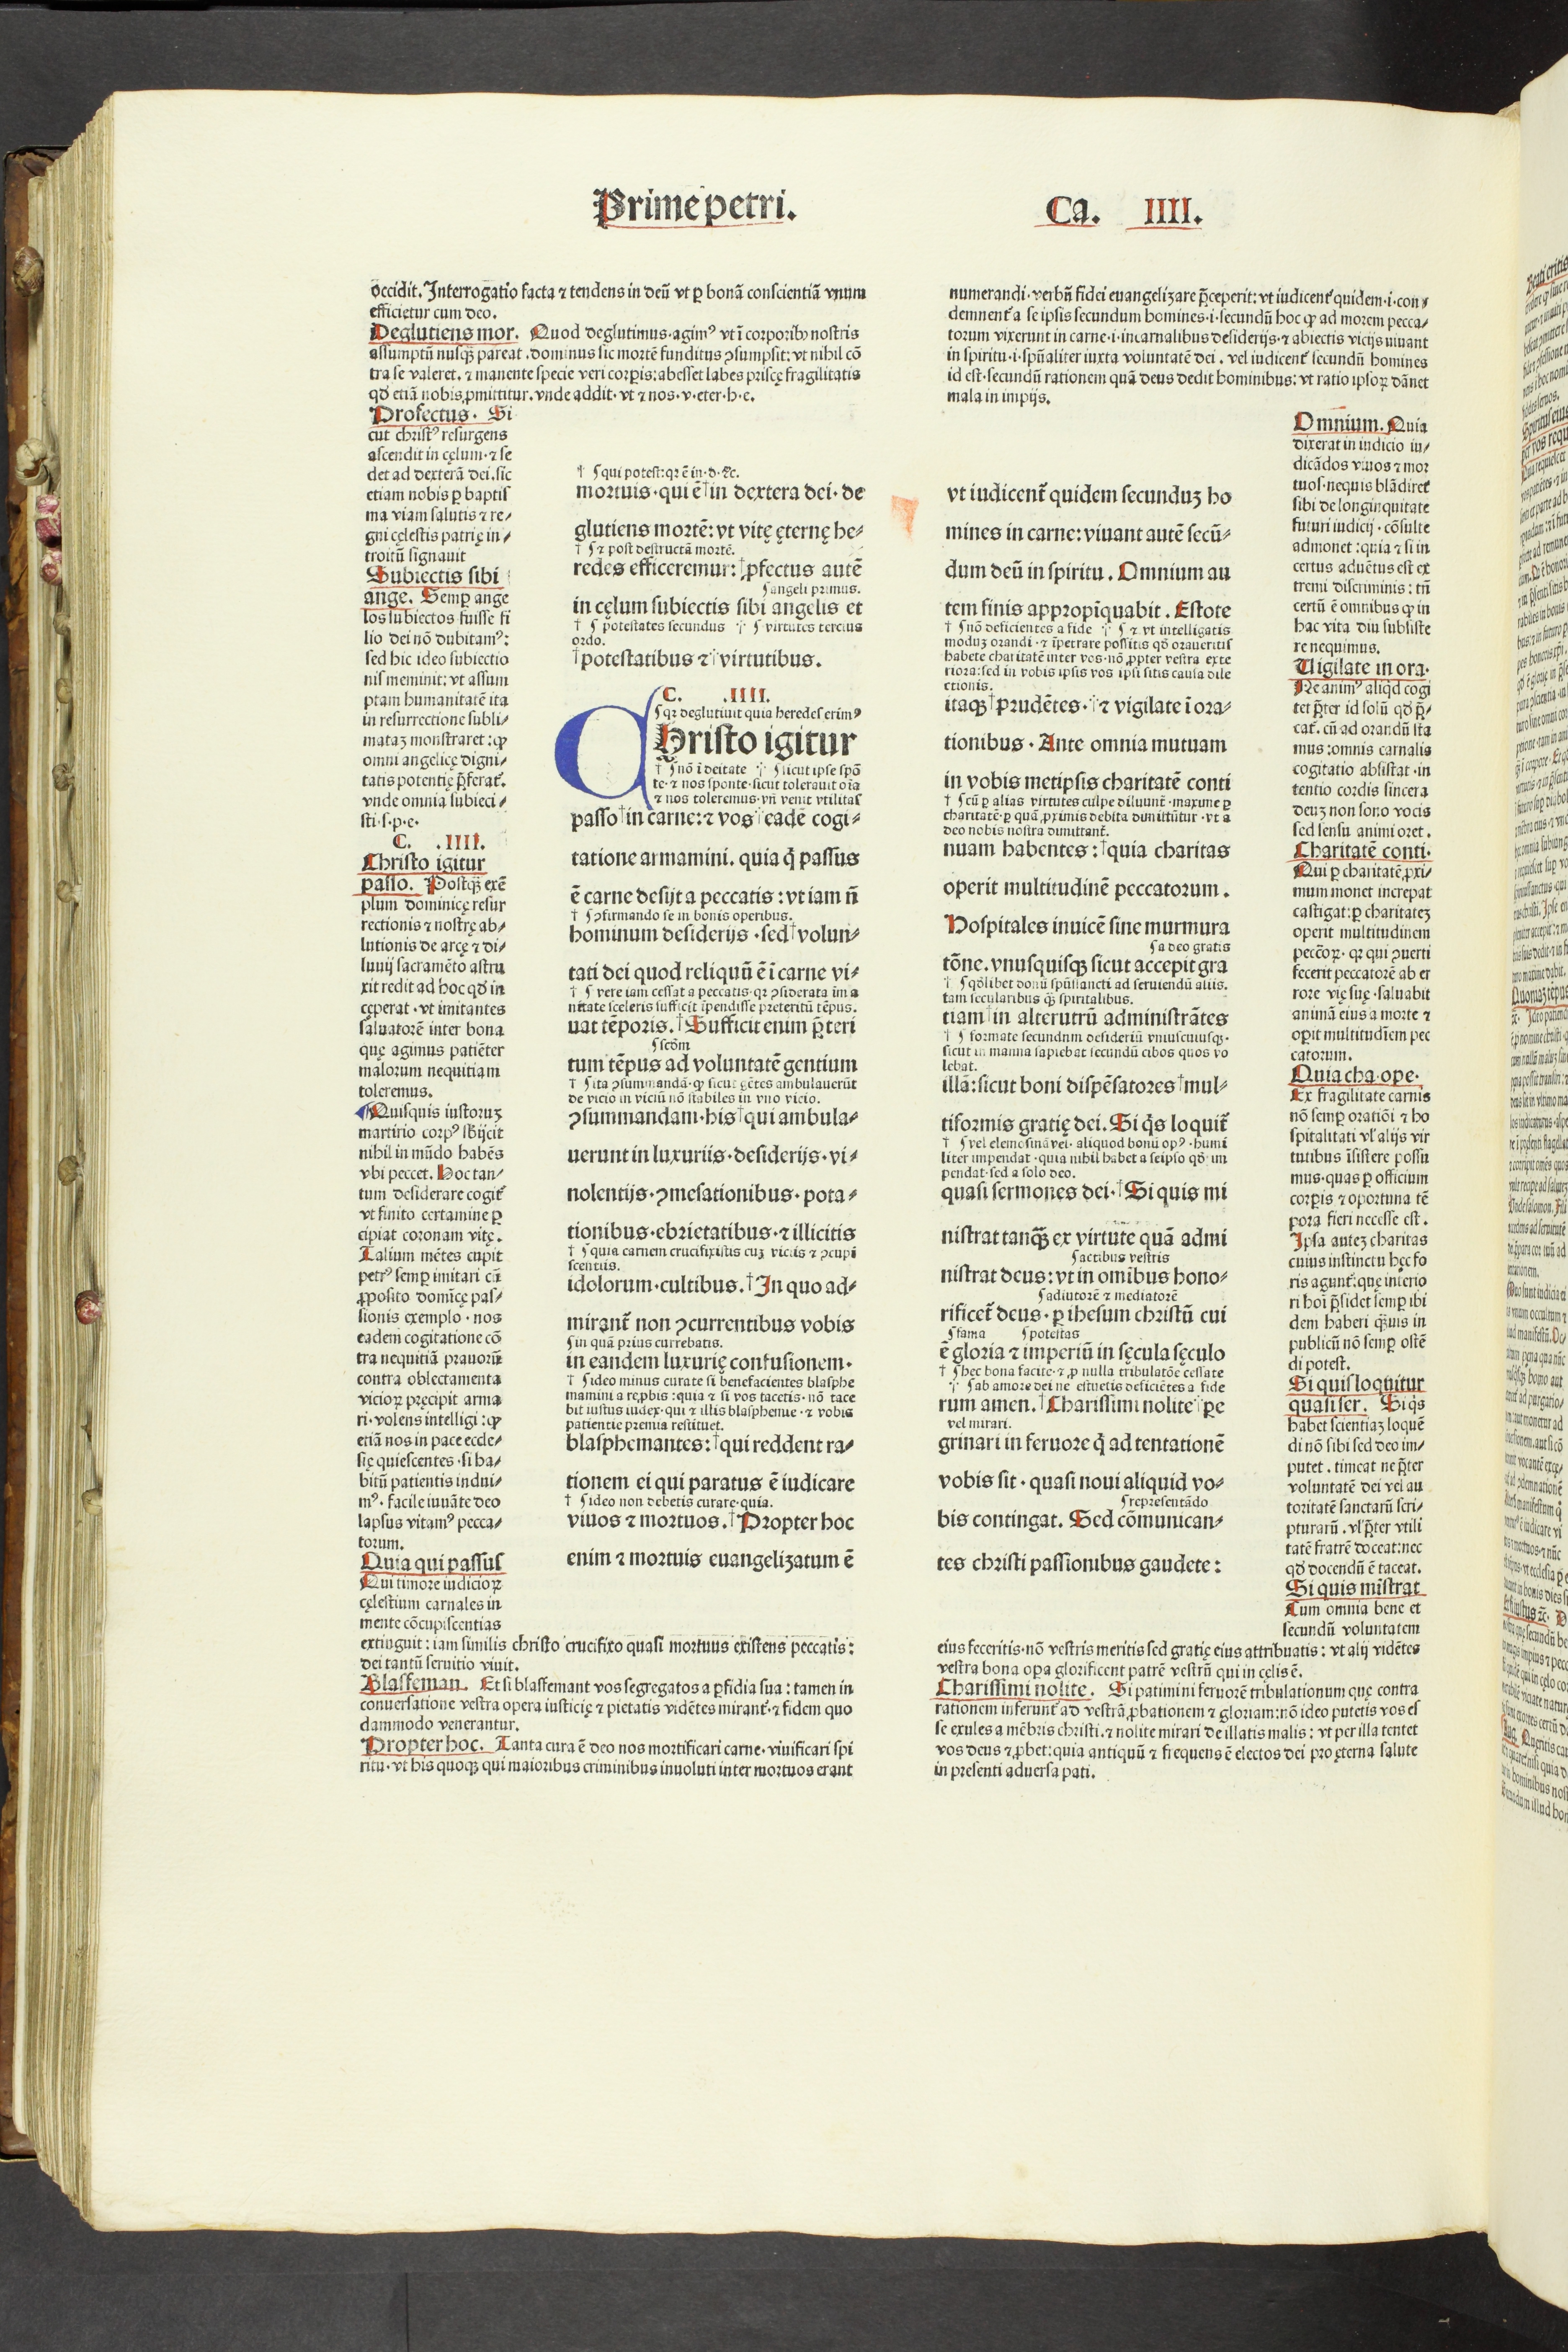 Prime petri.
Ca. IIII.
occidit. Interrogatio facta ⁊ tendens in deū vt ꝑ bonā conscientiā vnum
efficietur cum deo.
Deglutiens mor. Quod deglutimus·agimꝰ vt ī corporibꝰ nostris
assumptū nusqꝫ pareat .dominus sic mortē funditus ꝯsumpsit: vt nihil cō
tra se valeret. ⁊ manente specie veri corꝑis: abesset labes priscę fragilitatis
qđ etiā nobis ꝓmittitur. vnde addit· vt ⁊ nos·v·eter·h·e.
Profectus· Si
cut christꝰ resurgens
ascendit in cęlum·⁊ se
det ad dexterā dei. sic
etiam nobis ꝑ baptis
ma viam salutis ⁊ re⸗
gni cęlestis patrię in⸗
troitū signauit
Subiectis sibi
ange. Semꝑ ange
los subiectos fuisse fi
lio dei nō dubitamꝰ:
sed hic ideo subiectio
nis meminit: vt assum
ptam humanitatē ita
in resurrectione subli⸗
mataꝫ monstraret: ꝙ
omni angelicę digni⸗
tatis potentię p̄ferat᷑.
vnde omnia subieci⸗
sti·s·p·e·
C. .IIII.
Christo igitur
passo. Postqꝫ̄ exē
plum dominicę resur
rectionis ⁊ nostrę ab⸗
lutionis de arcę ⁊ di⸗
luuij sacramēto astru
xit redit ad hoc qđ in
cęperat·vt imitantes
saluatorē inter bona
quę agimus patiēter
malorum nequitiam
toleremus.
Quisquis iustoruꝫ
martirio corpꝰ sbijcit
nihil in mūdo habēs
vbi peccet. Hoc tan⸗
tum desiderare cogit᷑
vt finito certamine ꝑ
cipiat coronam vitę.
Talium mētes cupit
petrꝰ semꝑ imitari cū
ꝓposito domīcę pas⸗
sionis exemplo·nos
eadem cogitatione cō
tra nequitiā prauorū
contra oblectamenta
vicioꝝ pręcipit arma
ri·volens intelligi: ꝙ
etiā nos in pace ecde⸗
się quiescentes·si ha⸗
bitū patientis indui⸗
mꝰ·facile iuuāte deo
lapsus vitamꝰ pecca⸗
torum.
Quia qui passus
Qui timore iudicioꝝ
cęlestium carnales in
mente cōcupiscentias
extinguit: iam similis christo crucifixo quasi mortuus existens peccatis:
dei tantū seruitio viuit.
Blasfęman. Et si blasfemant vos segregatos a ꝑfidia sua: tamen in
conuersatione vestra opera iusticię ⁊ pietatis vidētes mirant᷑·⁊ fidem quo
dammodo venerantur.
Propter hoc. Tanta cura ē deo nos mortificari carne·viuificari spi
ritu·vt his quoqꝫ qui maioribus criminibus inuoluti inter mortuos erant
† ⸿ qui potest: qꝛ ē in·d·⁊c.
mortuis·qui ē†in dextera dei·de
glutiens mortē: vt vitę ęternę he⸗
† ⸿ ⁊ post destructā mortē.
redes efficeremur: †ꝓfectus autē
⸿angeli primus.
in cęlum subiectis sibi angelis et
† ⸿ potestates secundus ⸪ ⸿ virtutes tercius
ordo.
†potestatibus ⁊ virtutibus.
C. .IIII.
⸿qꝛ deglutiuit quia heredes erimꝰ
CHristo igitur
† ⸿nō ī deitate ⸪ ⸿sicut ipse spō
te·⁊ nos sponte·sicut tolerauit oīa
⁊ nos toleremus·vñ venit vtilitas
passo†in carne: ⁊ vos eadē cogi⸗
tatione armamini. quia q̄ passus
ē carne desijt a peccatis: vt iam ñ
† ⸿ ꝯfirmando se in bonis operibus.
hominum desiderijs·sed†volun⸗
tati dei quod reliquū ē ī carne vi⸗
† ⸿ vere iam cessat a peccatis·qꝛ ꝯsiderata im a
nitate sceleris sufficit īpendisse preteritū tēpus.
uat tēporis. †Sufficit enim p̄teri
⸿scōm
tum tēpus ad voluntatē gentium
† ⸿ita ꝯsummandā·ꝙ sicut gētes ambulauerūt
de vicio in viciū nō stabiles in vno vicio.
ꝯsummandam·his†qui ambula⸗
uerunt in luxuriis·desiderijs·vi⸗
nolentijs·ꝯmesationibus·pota⸗
tionibus·ebrietatibus·⁊ illicitis
† ⸿quia carnem crucifixistis cuꝫ viciis ⁊ ꝯcupi
scentiis.
idolorum·cultibus. †In quo ad⸗
mirant᷑ non ꝯcurrentibus vobis
⸿in quā prius currebatis.
in eandem luxurię confusionem·
† ⸿ideo minus curate si benefacientes blasphe
mamini a reprobis: quia ⁊ si vos tacetis·nō tace
bit iustus iudex·qui ⁊ illis blasphemie·⁊ vobis
patientie premia restituet.
blasphemantes: †qui reddent ra⸗
tionem ei qui paratus ē iudicare
† ⸿ideo non debetis curare·quia.
viuos ⁊ mortuos. †Propter hoc
enim ⁊ mortuis euangelizatum ē
numerandi·verbū fidei euangelizare p̄ceperit: vt iudicent᷑ quidem·i·con⸗
demnent᷑ a se ipsis secundum homines·i·secundū hoc ꝙ ad morem pecca⸗
torum vixerunt in carne·i·incarnalibus desiderijs·⁊ abiectis vicijs uiuant
in spiritu·i·spūaliter iuxta voluntatē dei. vel iudicent᷑ secundū homines
id est·secundū rationem quā deus dedit hominibus: vt ratio ipsoꝝ dānet
mala in impijs.
vt iudicent᷑ quidem secunduꝫ ho
mines in carne: viuant autē secū⸗
dum deū in spiritu. Omnium au
tem finis appropīquabit. Estote
† ⸿nō deficientes a fide ⸪ ⸿ ⁊ vt intelligatis
moduꝫ orandi·⁊ īpetrare possitis qđ oraueritis
habete charitatē inter vos·nō ꝓpter vestra exte
riora: sed in vobis ipsis vos ipsi sitis causa dile
ctionis.
itaqꝫ†prudētes·⁊ vigilate ī ora⸗
tionibus·Ante omnia mutuam
in vobis metipsis charitatē conti
† ⸿cū ꝑ alias virtutes culpe diluunt᷑·maxime ꝑ
charitatē·ꝑ quā ꝓximis debita dimittūtur·vt a
deo nobis nostra dimittant᷑.
nuam habentes: †quia charitas
operit multitudinē peccatorum.
Hospitales inuicē sine murmura
⸿a deo gratis
tōne. vnusquisqꝫ sicut accepit gra
† ⸿qđlibet donū spūssancti ad seruiendū aliis.
tam secularibus qꝫ̄ spiritalibus.
tiam†in alterutrū administrātes
† ⸿ formate secundum desideriū vniuscuiusqꝫ·
sicut in manna sapiebat secundū cibos quos vo
lebat.
illā: sicut boni dispēsatores†mul⸗
tiformis gratię dei. Si q̄s loquit᷑
† ⸿vel elemosinā vel·aliquod bonū opꝰ·humi
liter impendat·quia nihil habet a seipso qđ im
pendat·sed a solo deo.
quasi sermones dei·†Si quis mi
nistrat tanqꝫ̄ ex virtute quā admi
⸿actibus vestris
nistrat deus: vt in omībus hono⸗
⸿adiutorē ⁊ mediatorē
rificet᷑ deus·ꝑ ihesum christū cui
⸿fama ⸿potestas
ē gloria ⁊ imperiū in sęcula sęculo
† ⸿hec bona facite·⁊ ꝓ nulla tribulatōe cessate
⸪ ⸿ab amore dei ne estuetis deficiētes a fide
rum amen. †Charissimi nolite pe
vel mirari.
grinari in feruore q̄ ad tentationē
vobis sit·quasi noui aliquid vo⸗
⸿representādo
bis contingat. Sed cōmunican⸗
tes christi passionibus gaudete:
Omnium. Quia
dixerat in iudicio iu⸗
dicādos viuos ⁊ mor
tuos·nequis blādiret᷑
sibi de longinquitate
futuri iudicij·cōsulte
admonet: quia ⁊ si in
certus aduētus est ex
tremi discriminis: tñ
certū ē omnibus ꝙ in
hac vita diu subsiste
re nequimus.
Uigilate in ora·
Ne animꝰ aliqd cogi
tet p̄ter id solū qđ p̄⸗
cat᷑. cū ad orandū sta
mus: omnis carnalis
cogitatio absistat·in
tentio cordis sincera
deuꝫ non sono vocis
sed sensu animi oret.
Charitatē conti·
Qui ꝑ charitatē ꝓxi⸗
mum monet increpat
castigat: ꝑ charitateꝫ
operit multitudinem
peccōꝝ·qꝛ qui ꝯuerti
fecerit peccatorē ab er
rore vię suę·saluabit
animā eius a morte ⁊
oꝑit multitudīem pec
catorum.
Quia cha·ope·
Ex fragilitate carnis
nō semꝑ oratiōi ⁊ ho
spitalitati vl̄ alijs vir
tutibus īsistere possu
mus·quas ꝑ officium
corꝑis ⁊ oportuna tē
pora fieri necesse est.
Ipsa auteꝫ charitas
cuius instinctu hęc fo
ris agunt᷑: quę interio
ri hoī p̄sidet semꝑ ibi
dem haberi qꝫ̄uis in
publicū nō semꝑ ostē
di potest.
Si quis loquitur
quasi ser. Si q̄s
habet scientiaꝫ loquē
di nō sibi sed deo im⸗
putet. timeat ne p̄ter
voluntatē dei vel au
toritatē sanctarū scri⸗
pturarū. vl̄ p̄ter vtili
tatē fratrē doceat: nec
qđ docendū ē taceat.
Si quis mīstrat
Cum omnia bene et
secundū voluntatem
eius feceritis·nō vestris meritis sed gratię eius attribuatis: vt alij vidētes
vestra bona oꝑa glorificent patrē vestrū qui in cęlis ē.
Charissimi nolite. Si patimini feruorē tribulationum quę contra
rationem inferunt᷑ ad vestrā ꝓbationem ⁊ gloriam: nō ideo putetis vos es
se exules a mēbris christi. ⁊ nolite mirari de illatis malis: vt per illa tentet
vos deus ⁊ ꝓbet: quia antiquū ⁊ frequens ē electos dei pro ęterna salute
in presenti aduersa pati.